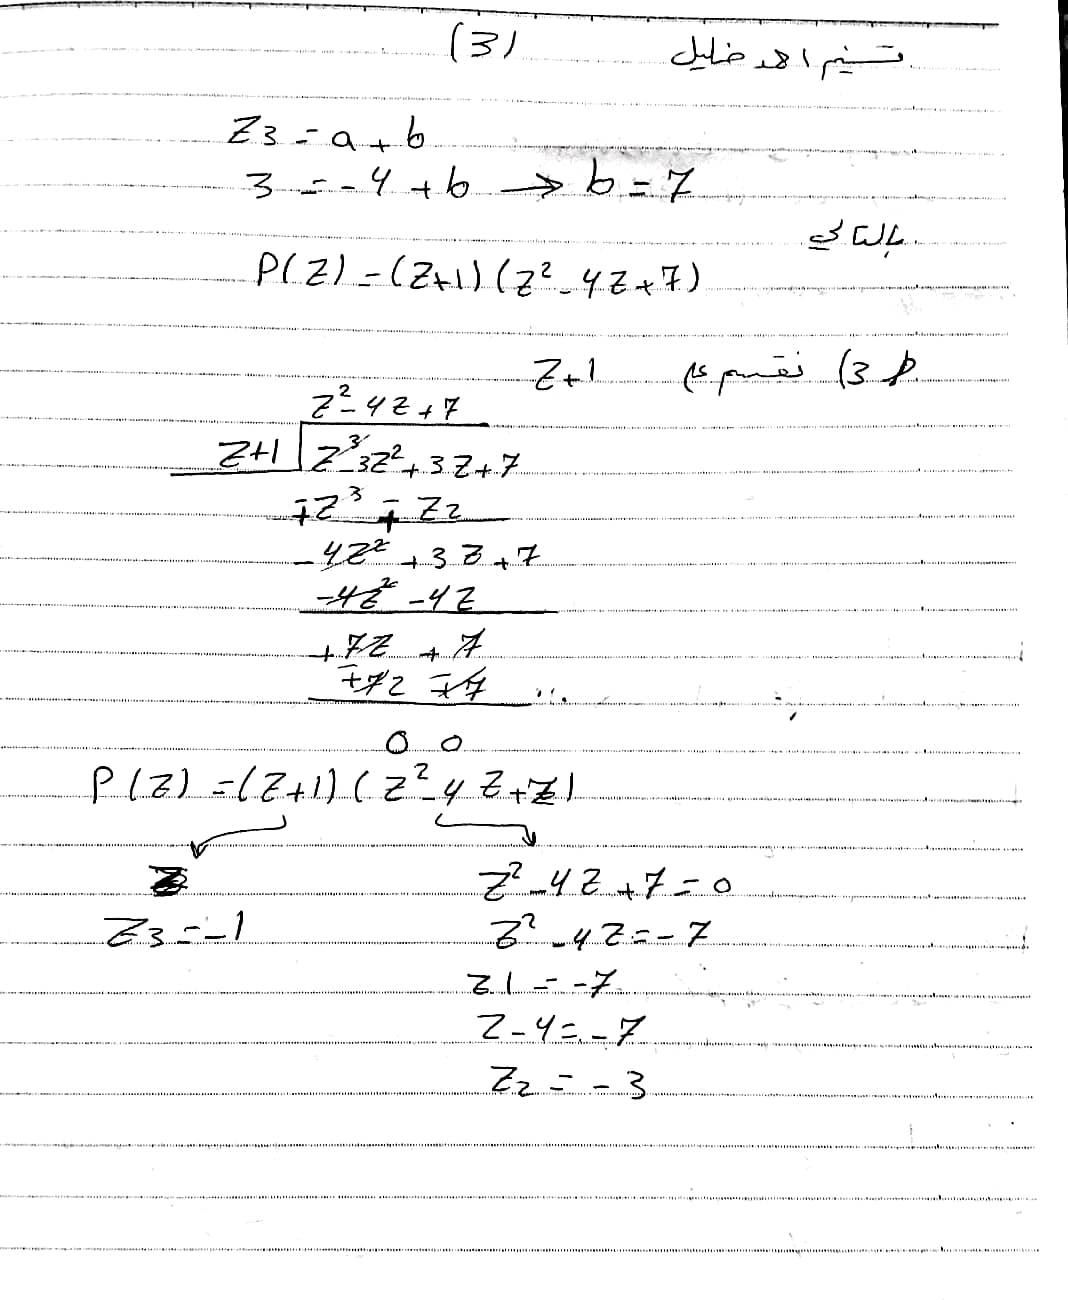 تسنيم احمد خليل (3)
Z3 = a + b
3 = -4 + b → b = 7
بالتالي
P(Z) = (Z+1) (Z² - 4Z + 7)
ط 3) نقسم على Z+1
Z² - 4Z + 7
Z+1 Z³ - 3Z² + 3Z + 7
∓Z³ ∓ Z2
-4Z² + 3Z + 7
-4Z² - 4Z
+7Z + 7
∓7Z ∓7
0 0
P(Z) = (Z+1) (Z² - 4Z + 7)
Z² - 4Z + 7 = 0
Z3 = -1 Z² - 4Z = -7
Z1 = -7
Z - 4 = -7
Z2 = -3